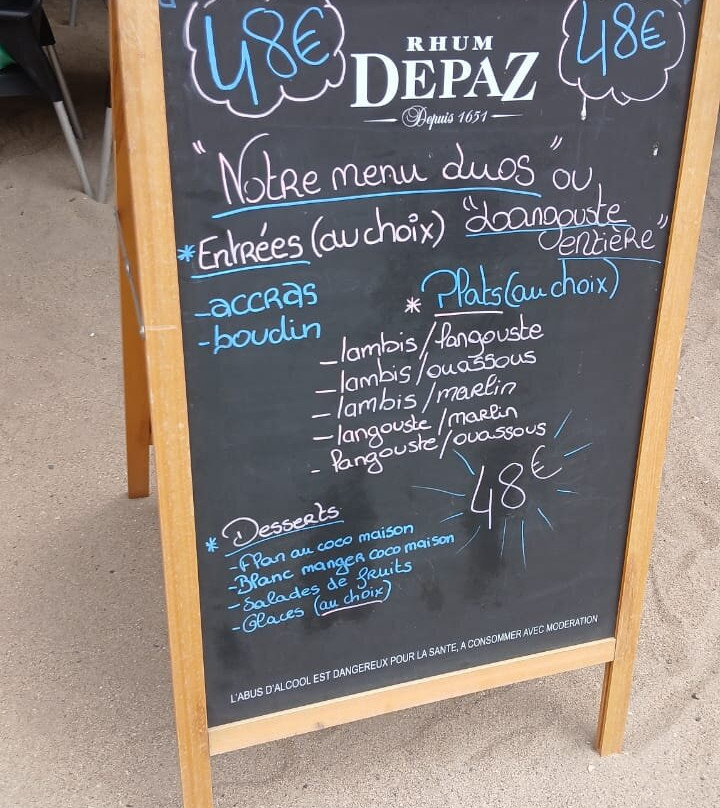 48€ 48€
RHUM
DEPAZ
Depuis 1651
"Notre menu duos" ou
"Langouste
entière"
*Entrées (au choix)
-accras
-boudin
* Plats (au choix)
-lambis/langouste
-lambis/ouassous
-lambis/marlin
-langouste/marlin
-langouste/ouassous
48€
* Desserts
-Flan au coco maison
-Blanc manger coco maison
-Salades de fruits
-Glaces (au choix)
L'ABUS D'ALCOOL EST DANGEREUX POUR LA SANTE, A CONSOMMER AVEC MODERATION